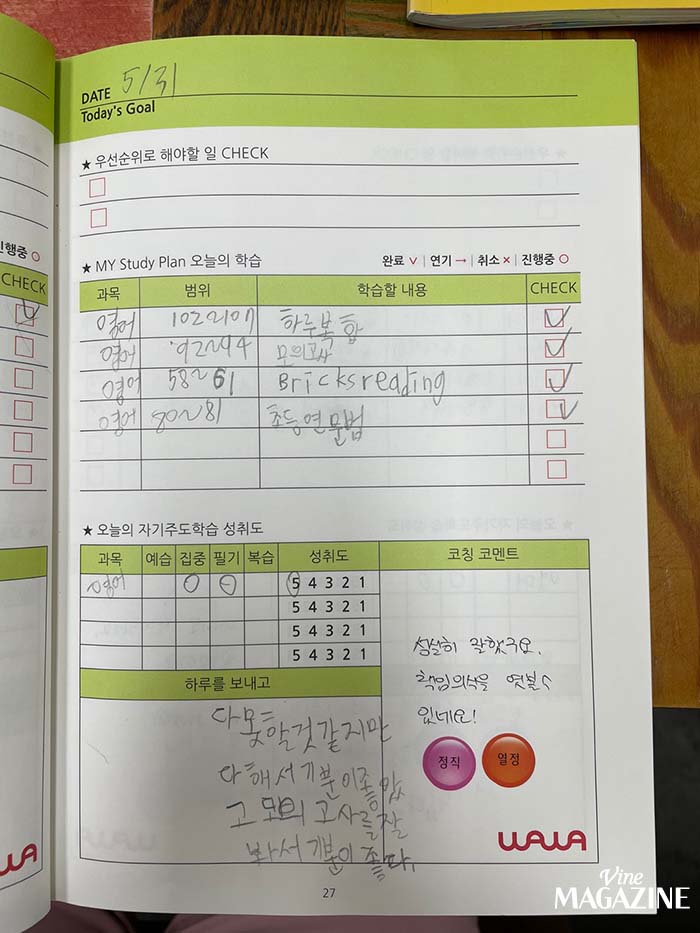 DATE 5/31
Today's Goal
★ 우선순위로 해야할 일 CHECK
★ MY Study Plan 오늘의 학습
완료 ∨ | 연기 → | 취소 × | 진행중 ○
진행중 ○
CHECK
과목 범위 학습할 내용 CHECK
영어 102~107 하루복합
영어 92~94 모의고사
영어 58~61 Bricksreading
영어 80~81 초등영문법
★ 오늘의 자기주도학습 성취도
과목 예습 집중 필기 복습 성취도 코칭 코멘트
영어 5 4 3 2 1
5 4 3 2 1
5 4 3 2 1
5 4 3 2 1
성실히 잘했구요.
책임의식을 엿볼 수
있네요!
정직 열정
하루를 보내고
다 못할것 같지만
다해서 기분이 좋았
고 모의고사를 잘
봐서 기분이 좋다.
WAWA
WAWA
27
Vine
MAGAZINE